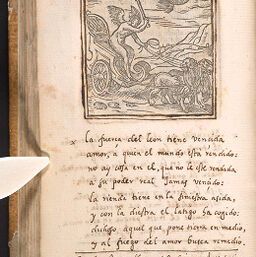 La fuerça del leon tiene vencida
amor, a quien el mundo esta rendido:
no ay cosa en el, que no le este rendida
a su poder real jamas vencido:
la rienda tiene en la siniestra asida,
y con la diestra el latigo ha cogido:
aquel que pone tierra en medio,
y al fuego del amor busca remedio.